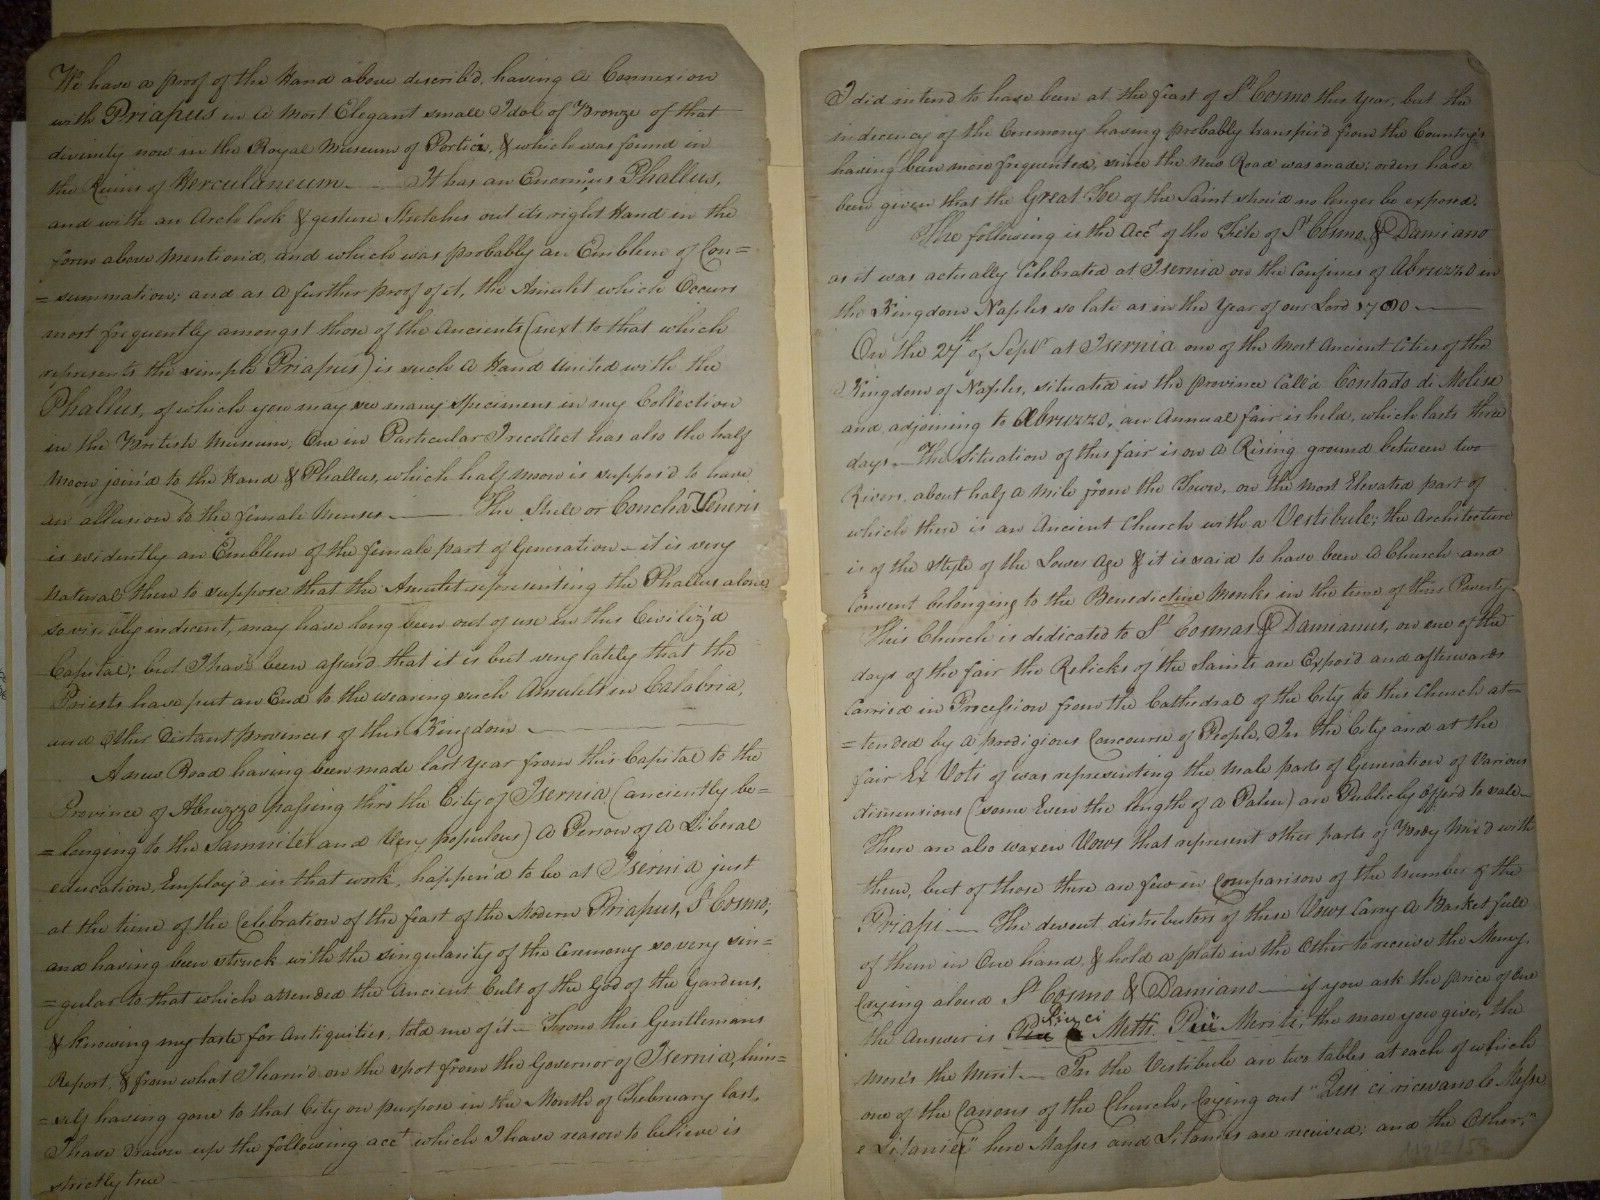 We have a proof of the Hand above describ'd, having a Connexion
with Priapus in a most Elegant small Idol of Bronze of that
divinity now in the Royal Museum of Portici, & which was found in
the Ruins of Herculaneum — It has an Enormous Phallus,
and with an Arch look & gesture Stretches out its right Hand in the
form above mention'd, and which was probably an Emblem of Con=
=summation; and as a further proof of it, the Amulet which Occurs
most frequently amongst those of the Ancients (next to that which
represents the simple Priapus) is such a Hand United with the
Phallus, of which you may see many specimens in my Collection
in the British Museum, One in Particular I recollect has also the half
Moon join'd to the Hand & Phallus, which half moon is suppos'd to have
an allusion to the female Menses — The Shell or Concha Veneris
is evidently an Emblem of the female part of Generation — it is very
natural then to suppose that the Amulets representing the Phallus alone,
so visibly indecent, may have long been out of use in this Civiliz'd
Capital; but I have been assured that it is but very lately that the
Priests have put an End to the wearing such Amulets in Calabria,
and Other Distant provinces of this Kingdom —
A new Road having been made last Year from this Capital to the
Province of Abruzzo passing thro the City of Isernia (anciently be=
=longing to the Samnites and Very populous) a Person of a Liberal
education, Employ'd in that work, happen'd to be at Isernia just
at the time of the Celebration of the feast of the Modern Priapus, St Cosmo;
and having been struck with the singularity of the Ceremony so very sin=
=gular to that which attended the Ancient Cult of the God of the Gardens,
& knowing my taste for Antiquities, told me of it — From this Gentlemans
Report, & from what I learn'd on the spot from the Governor of Isernia, him=
=self having gone to that City on purpose in the Month of February last,
I have drawn up the following acct which I have reason to believe is
strictly true —
I did intend to have been at the feast of St Cosmo this Year, but the
indecency of the Ceremony having probably transpir'd from the Country's
having been more frequented, since the New Road was made; orders have
been given that the Great Toe of the Saint shou'd no longer be exposed.
The following is the Acct of the Fete of St Cosmo & Damiano
as it was actually Celebrated at Isernia on the Confines of Abruzzo in
the Kingdom Naples so late as in the Year of our Lord 1780 —
On the 27th of Septr at Isernia one of the Most Ancient Cities of the
Kingdom of Naples, situated in the province Call'd Contado di Molise
and adjoining to Abruzzo, an Annual fair is held, which lasts three
days — The Situation of this fair is on a Rising ground between two
Rivers, about half a Mile from the Town, on the most Elevated part of
which there is an Ancient Church with a Vestibule; the Architecture
is of the Style of the Lower Age & it is said to have been a Church and
Convent belonging to the Benedictine Monks in the time of their Poverty
This Church is dedicated to St Cosmas & Damianus, on one of the
days of the fair the Relicks of the Saints are Expos'd and afterwards
Carried in Procession from the Cathedral of the City to this Church at=
=tended by a prodigious Concourse of People, In the City and at the
fair Ex Voti of wax representing the Male parts of Generation of Various
dimensions (some Even the length of a Palm) are Publicly offer'd to sale —
There are also waxen Vows that represent other parts of Body Mix'd with
them, but of those there are few in Comparison of the Number of the
Priapi — The devout distributers of these Vows Carry a Basket full
of them in One hand, & hold a plate in the Other to receive the Money,
Crying aloud St Cosmo & Damiano — if you ask the price of One
the Answer is Più ci Metti Più Meriti, the more you give, the
more's the Merit — In the Vestibule are two tables at each of which
one of the Canons of the Church, Crying out "Qui ci ricevano le Messe
e Litanie" here Masses and Litanies are received; and the Other, "